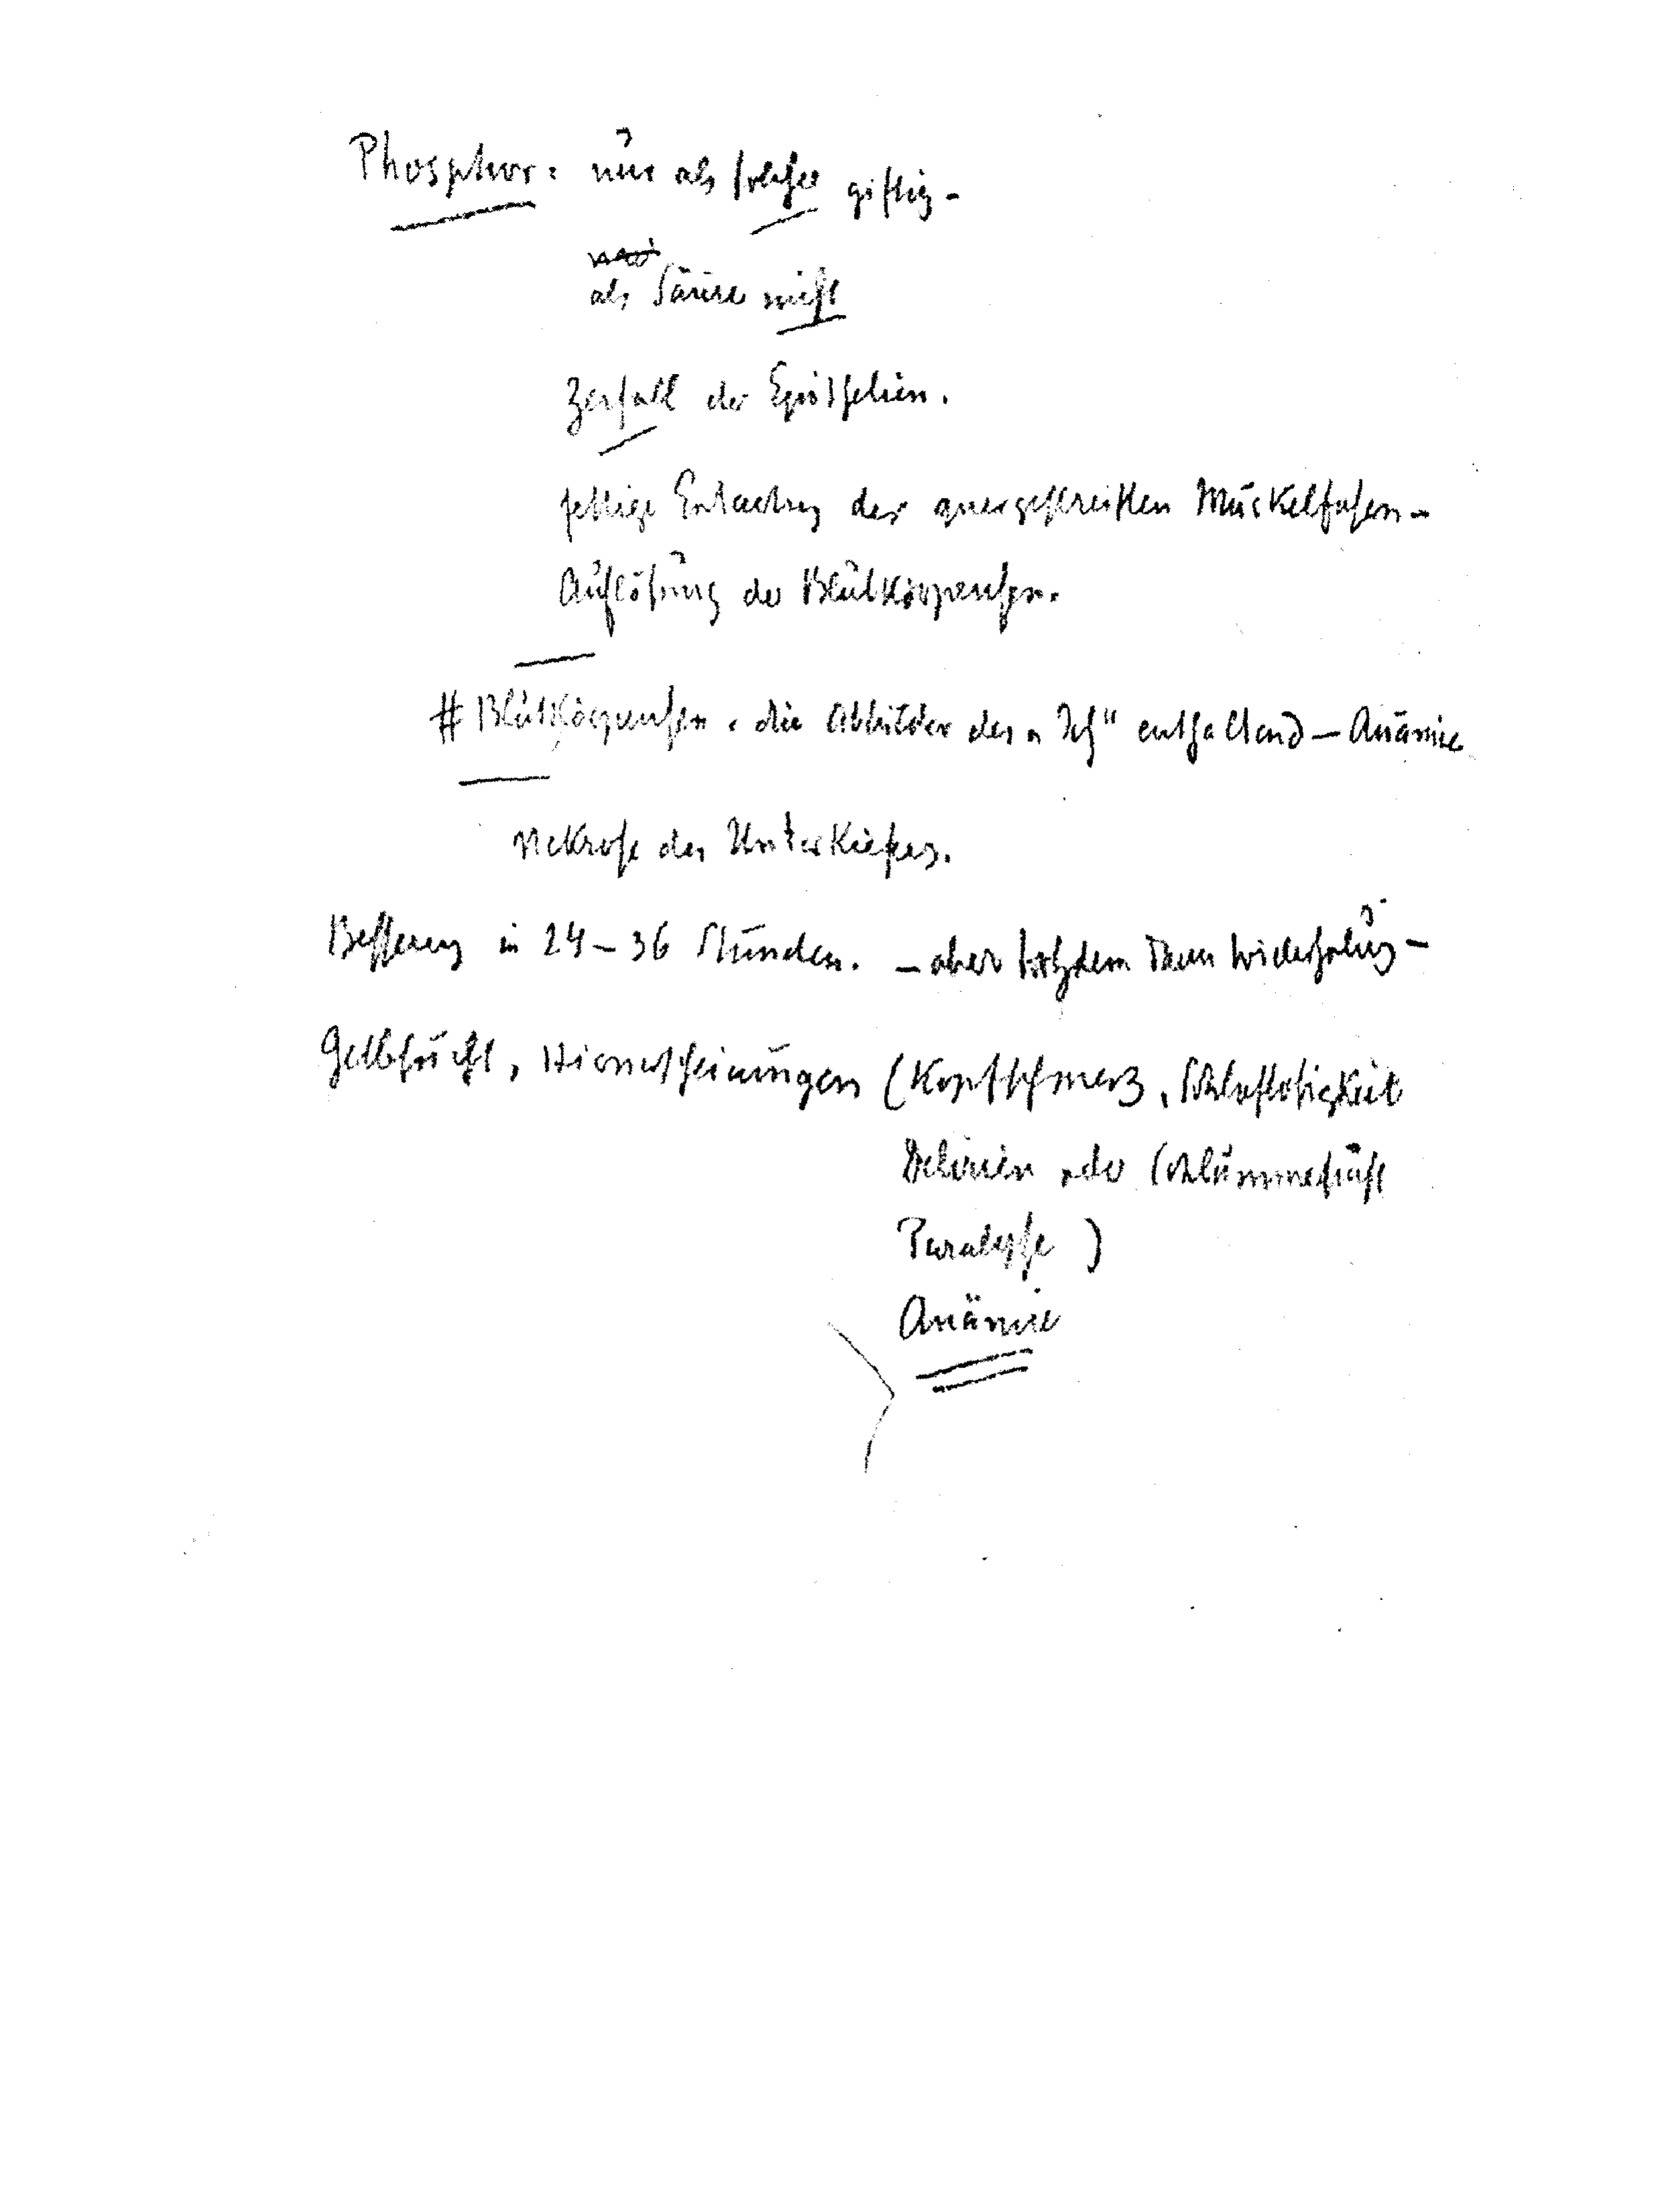 Phosphor: nur als solcher giftig –
als Säure nicht
Zerfall der Epithelien.
fettige Entartung der quergestreiften Muskelfasern –
Auflösung der Blutkörperchen.
# Blutkörperchen: die Abbilder des „Ich“ enthaltend – Anämie
Nekrose des Unterkiefers.
Besserung in 24–36 Stunden. – aber trotzdem dann Widerholung –
Gelbsucht, Hirnerscheinungen (Kopfschmerz, Schlaflosigkeit
Delirien oder Schlummersucht
Paralyse)
Anämie